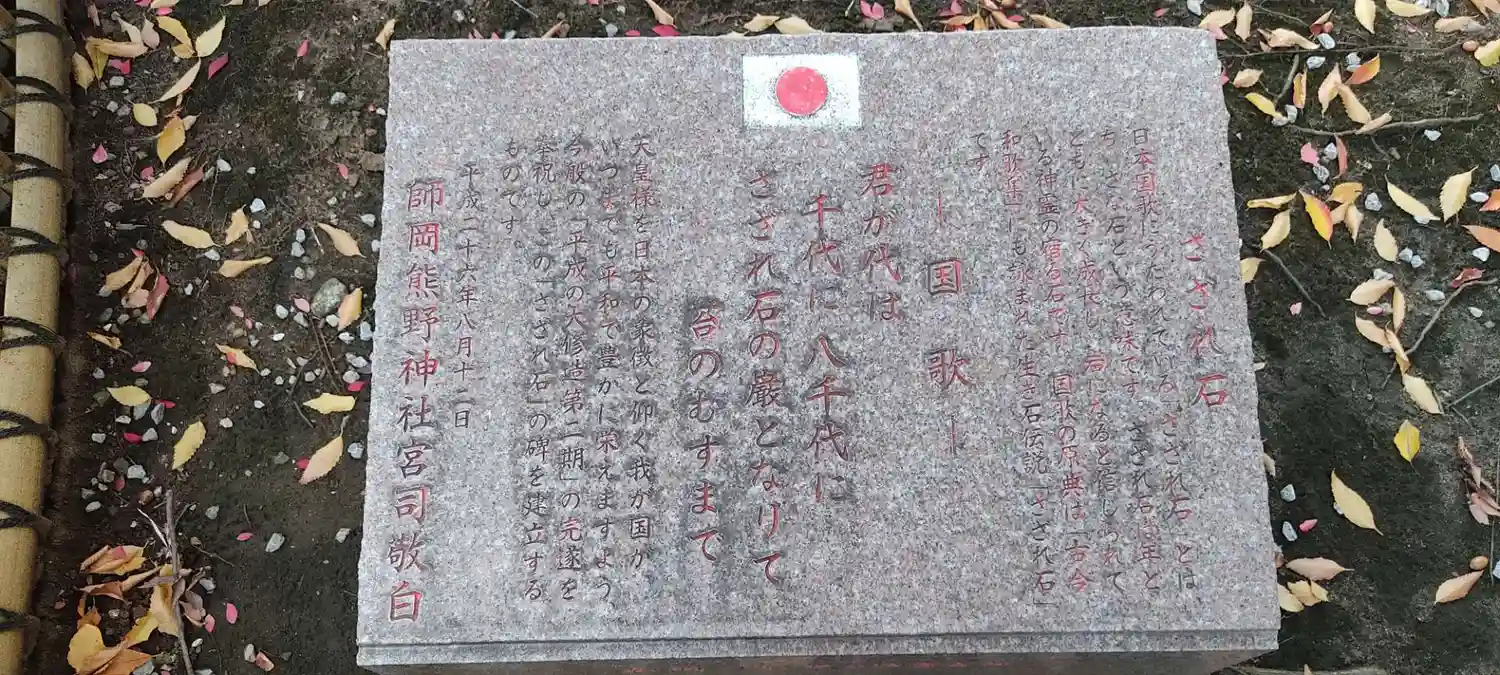 さざれ石
日本国歌にうたわれている「さざれ石」とは
ちいさな石という意味です。さざれ石は年と
ともに大きく成長し、岩になると信じられて
いる神霊の宿る石です。国歌の原典は「古今
和歌集」にも詠まれた生き石伝説「さざれ石」
です。
―国歌―
君が代は
千代に八千代に
さざれ石の巌となりて
苔のむすまで
天皇様を日本の象徴と仰ぐ我が国が
いつまでも平和で豊かに栄えますよう
今般の「平成の大修造第二期」の完遂を
奉祝し、この「さざれ石」の碑を建立する
ものです。
平成二十六年八月十二日
師岡熊野神社宮司敬白